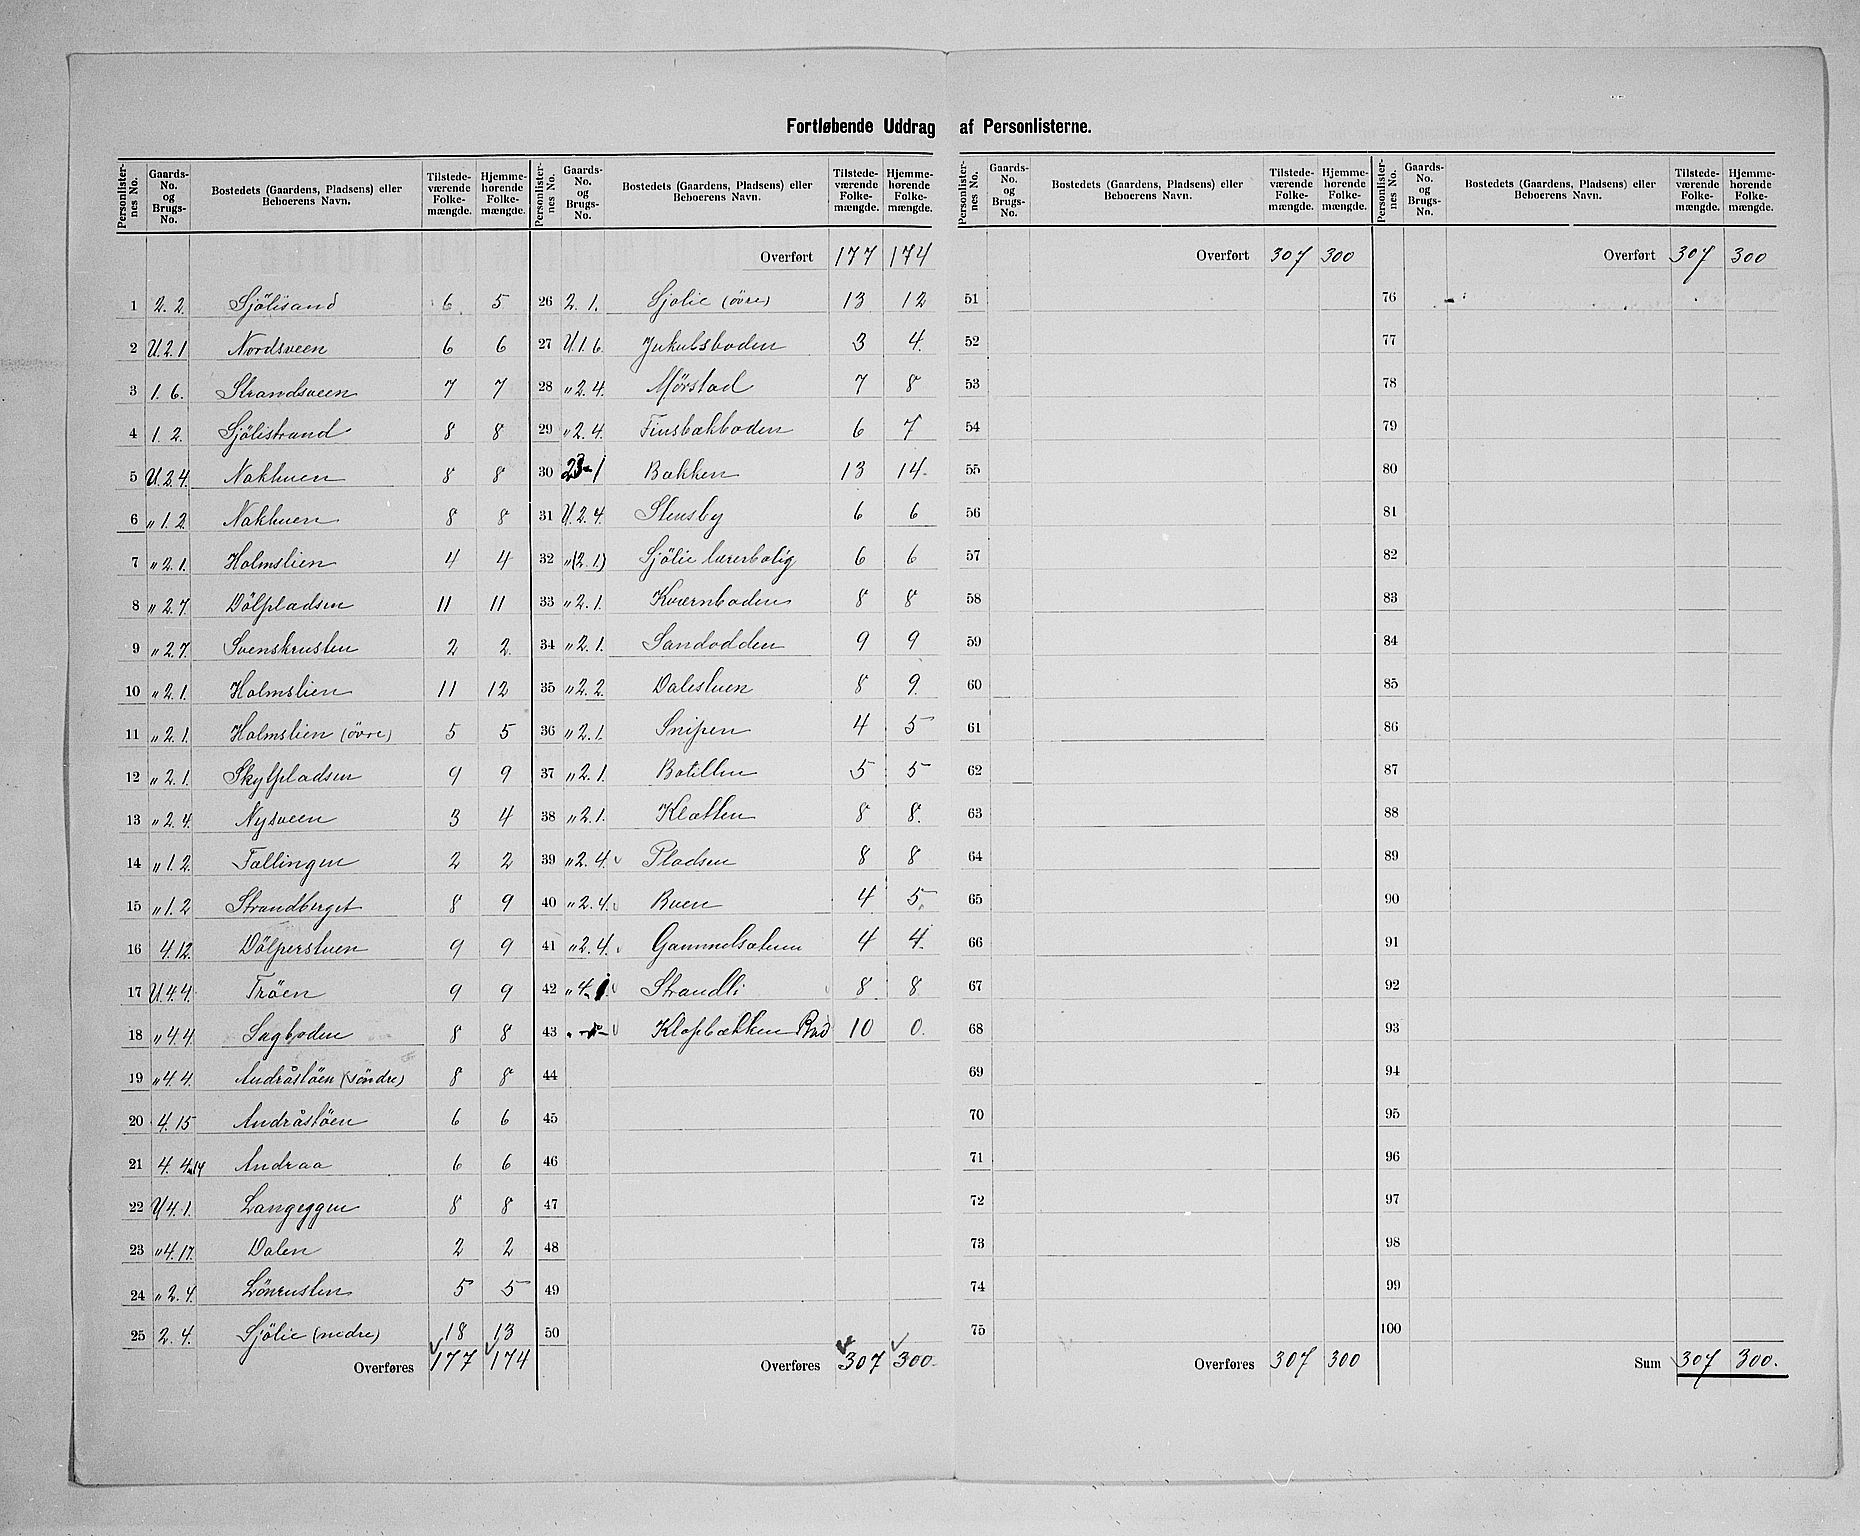 Fortløbende Uddrag af Personlisterne.
Personlisternes No. Gaards-No. og Brugs-No. Bostedets (Gaardens, Pladsens) eller Beboerens Navn. Tilstedeværende Folkemængde. Hjemmehørende Folkemængde.
1 2. 2. Sjölisand 6 5
2 U. 2. 1 Nordsveen 6 6
3 1. 6. Strandsveen 7 7
4 1. 2. Sjölistrand 8 8
5 U. 2. 4. Nakhuen 8 8
6 „ 1. 2. Nakhuen 8 8
7 „ 2. 1. Holmslien 4 4
8 „ 2. 7. Dölpladsen 11 11
9 „ 2. 7. Svenskrusten 2 2
10 „ 2. 1. Holmslien 11 12
11 „ 2. 1. Holmslien (övre) 5 5
12 „ 2. 1. Skytpladsen 9 9
13 „ 2. 4. Nysveen 3 4
14 „ 1. 2. Fællingen 2 2
15 „ 1. 2 Strandberget 8 9
16 4. 12. Dölperstuen 9 9
17 U. 4. 4. Tröen 9 9
18 „ 4. 4. Sagboden 8 8
19 „ 4. 4. Andråstöen (söndre) 8 8
20 4. 15 Andråstöen 6 6
21 4. 4 14 Andraa 6 6
22 U 4. 1. Langeggen 8 8
23 „ 4. 17. Dalen 2 2
24 „ 2. 4. Lönrusten 5 5
25 2. 4. Sjölie (nedre) 18 13
Overføres 177 174
Personlisternes No. Gaards-No. og Brugs-No. Bostedets (Gaardens, Pladsens) eller Beboerens Navn. Tilstedeværende Folkemængde. Hjemmehørende Folkemængde.
Overført 177 174
26 2. 1. Sjolie (övre) 13 12
27 U. 1. 6. Jukulsboden 3 4.
28 „ 2. 4. Mörstad 7 8
29 „ 2. 4. Finsbakboden 6 7
30 23 1 Bækken 13 14.
31 U. 2. 4. Stensby 6 6
32 „ (2. 1) Sjölie lærerbolig 6 6
33 „ 2. 1. Kværnboden 8 8
34 „ 2. 1. Sandodden 9 9
35 „ 2. 2. Dalestuen 8 9.
36 „ 2. 1. Snipen 4 5
37 „ 2. 1. Botillen 5 5
38 „ 2. 1. Kletten 8 8.
39 „ 2. 4. Pladsen 8 8
40 „ 2. 4. Buen 4 5.
41 „ 2. 4. Gammelsætren 4 4.
42 „ 4. 1. Strandli 8 8
43 Klopbækken 10 0.
44
45
46
47
48
49
50
Overføres 307 300.
Personlisternes No. Gaards-No. og Brugs-No. Bostedets (Gaardens, Pladsens) eller Beboerens Navn. Tilstedeværende Folkemængde. Hjemmehørende Folkemængde.
Overført 307 300
51
52
53
54
55
56
57
58
59
60
61
62
63
64
65
66
67
68
69
70
71
72
73
74
75
Overføres 307 300
Personlisternes No. Gaards-No. og Brugs-No. Bostedets (Gaardens, Pladsens) eller Beboerens Navn. Tilstedeværende Folkemængde. Hjemmehørende Folkemængde.
Overført 307 300
76
77
78
79
80
81
82
83
84
85
86
87
88
89
90
91
92
93
94
95
96
97
98
99
100
Sum 307 300.